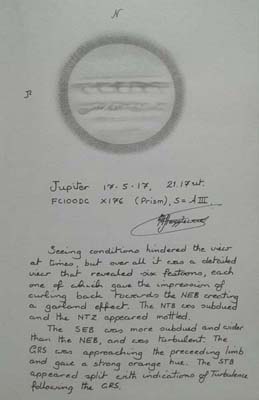 N
P
Jupiter 17-5-17, 21.17ut.
FC100DC X176 (Prism), S = λIII.
Seeing conditions hindered the view
at times, but over all it was a detailed
view that revealed six festoons, each
one of which gave the impression of
curling back towards the NEB creating
a garland effect. The NTB was subdued
and the NTZ appeared mottled.
The SEB was more subdued and wider
than the NEB, and was turbulent. The
GRS was approaching the preceeding limb
and gave a strong orange hue. The STB
appeared split with indications of Turbulence
following the GRS.